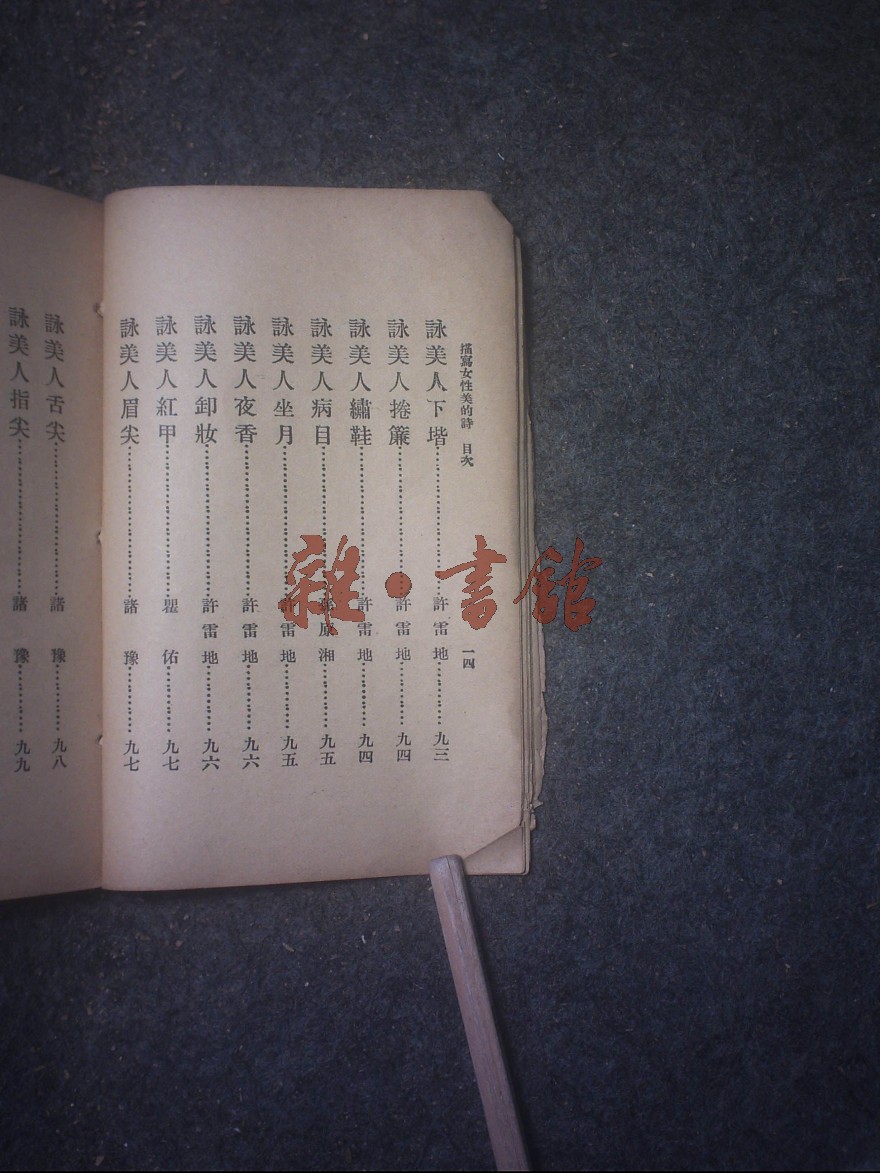 描寫女性美的詩 目次 一四
詠美人下堦 許雷地 九三
詠美人捲簾 許雷地 九四
詠美人繡鞋 許雷地 九四
詠美人病目 成湘 九五
詠美人坐月 許雷地 九五
詠美人夜香 許雷地 九六
詠美人卸妝 許雷地 九六
詠美人紅甲 瞿佑 九七
詠美人眉尖 諸豫 九七
詠美人舌尖 諸豫 九八
詠美人指尖 諸豫 九九
雜·書館